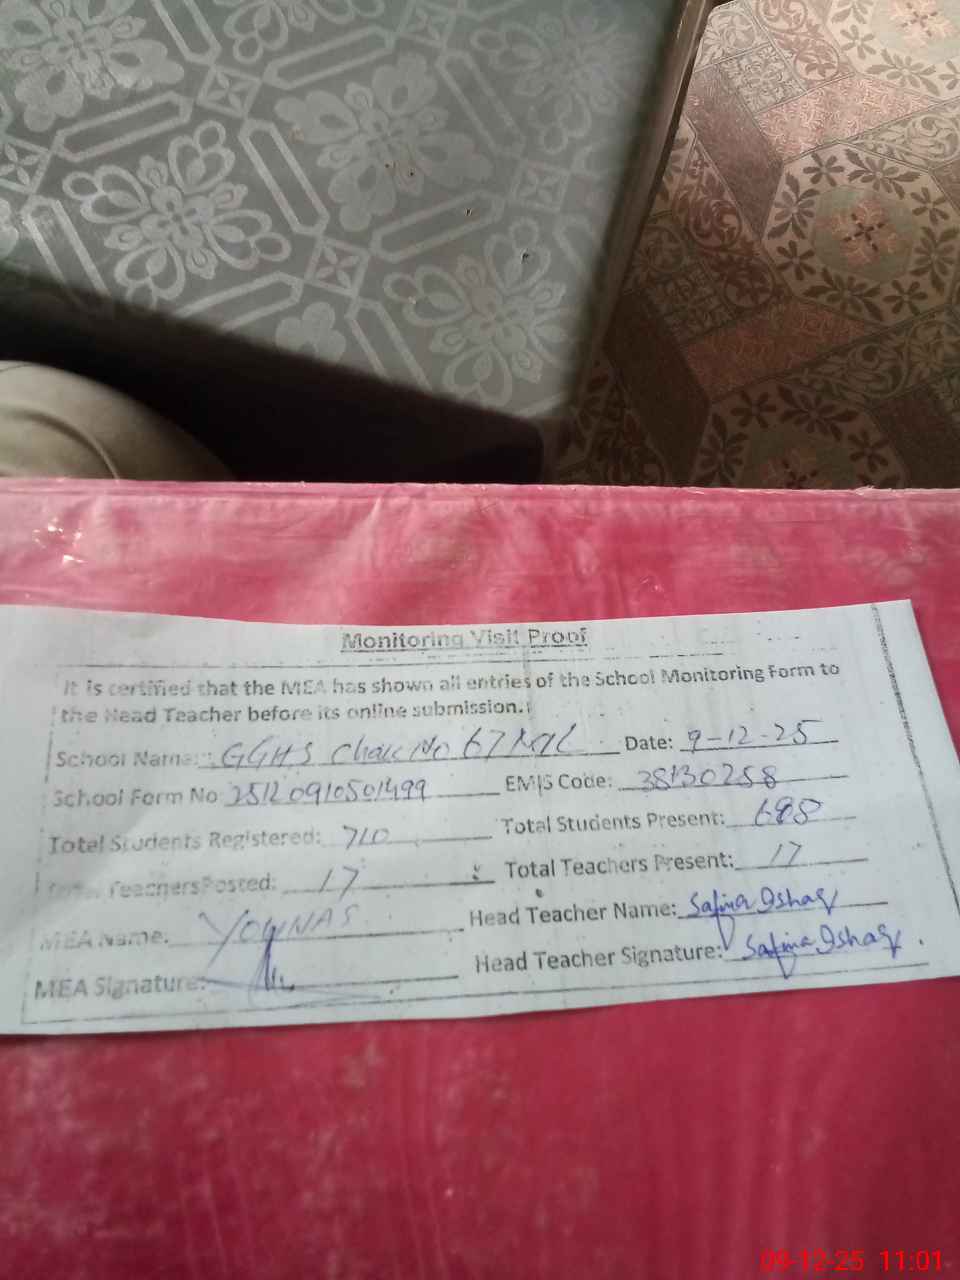 Monitoring Visit Proof
It is certified that the MEA has shown all entries of the School Monitoring Form to
the Head Teacher before its online submission.
School Name: GGHS Chak No 67 ML Date: 9-12-25
School Form No 25120910501499 EMIS Code: 38130258
Total Students Registered: 710 Total Students Present: 688
Total Teachers Posted: 17 Total Teachers Present: 17
MEA Name. YOUNAS Head Teacher Name: Safina Ishaq
MEA Signature: Head Teacher Signature: Safina Ishaq
09-12-25 11:01